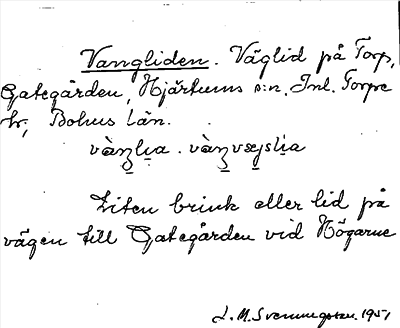 Vangliden. Väglid på Torp,
Gategården, Hjärtums s:n, Inl. Torpe
hr, Bohus län.
Liten brink eller lid på
vägen till Gategården vid Högarne
L. M. Svenungsson. 1951